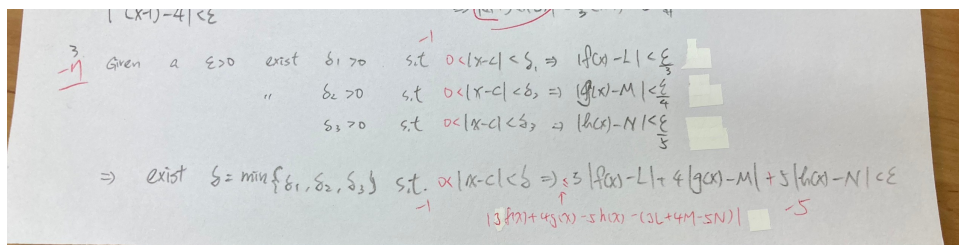 |(x-1)-4|<ε
3
-1
-η Given a ε>0 exist δ₁>0 s.t 0<|x-c|<δ₁ ⇒ |f(x)-L|<ε/3
" δ₂>0 s.t 0<|x-c|<δ₂ ⇒ |g(x)-M|<ε/4
δ₃>0 s.t 0<|x-c|<δ₃ ⇒ |h(x)-N|<ε/5
⇒ exist δ=min{δ₁,δ₂,δ₃} s.t. 0<|x-c|<δ ⇒ ≤3|f(x)-L|+4|g(x)-M|+5|h(x)-N|<ε
-1 ↑ -5
|3f(x)+4g(x)-5h(x)-(3L+4M-5N)|